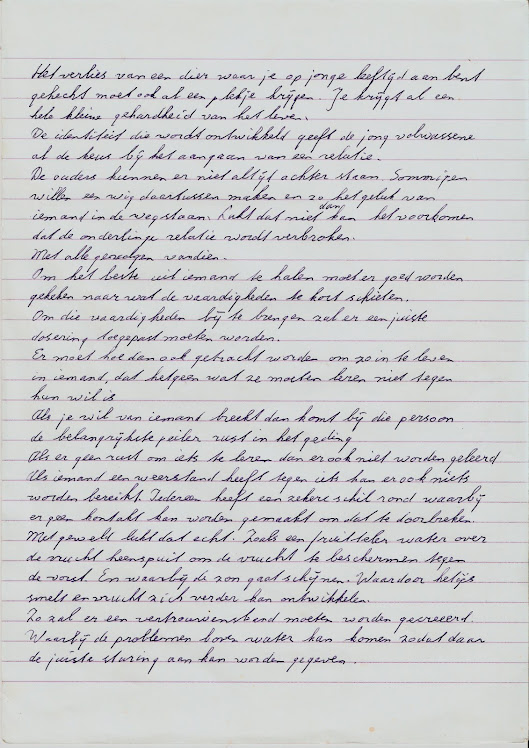 Het verlies van een dier waar je op jonge leeftijd aan bent
gehecht moet ook al een plekje krijgen. Je krijgt al een
hele kleine gehardheid van het leven.
De identiteit die wordt ontwikkeld geeft de jong volwassene
al de keus bij het aangaan van een relatie.
De ouders kunnen er niet altijd achter staan. Sommigen
willen een wig daartussen maken en zo het geluk van
iemand in de weg staan. Lukt dat niet dan kan het voorkomen
dat de onderlinge relatie wordt verbroken.
Met alle gevolgen vandien.
Om het beste uit iemand te halen moet er goed worden
gekeken naar wat de vaardigheden te kort schieten.
Om die vaardigheden bij te brengen zal er een juiste
dosering toegepast moeten worden.
Er moet hoe dan ook getracht worden om zo in te leven
in iemand, dat hetgeen wat ze moeten leren niet tegen
hun wil is
Als je wil van iemand breekt dan komt bij die persoon
de belangrijkste peiler rust in het geding
Als er geen rust om iets te leren dan er ook niet worden geleerd
Als iemand een weerstand heeft tegen iets kan er ook niets
worden bereikt. Iedereen heeft een zekere schil rond waarbij
er geen kontakt kan worden gemaakt om dat te doorbreken.
Met geweld lukt dat echt. Zoals een fruitteler water over
de vrucht heenspuit om de vrucht te beschermen tegen
de vorst. En waarbij de zon gaat schijnen. Waardoor het ijs
smelt en vrucht zich verder kan ontwikkelen.
Zo zal er een vertrouwensband moeten worden gecreeerd.
Waarbij de problemen boven water kan komen zodat daar
de juiste sturing aan kan worden gegeven.